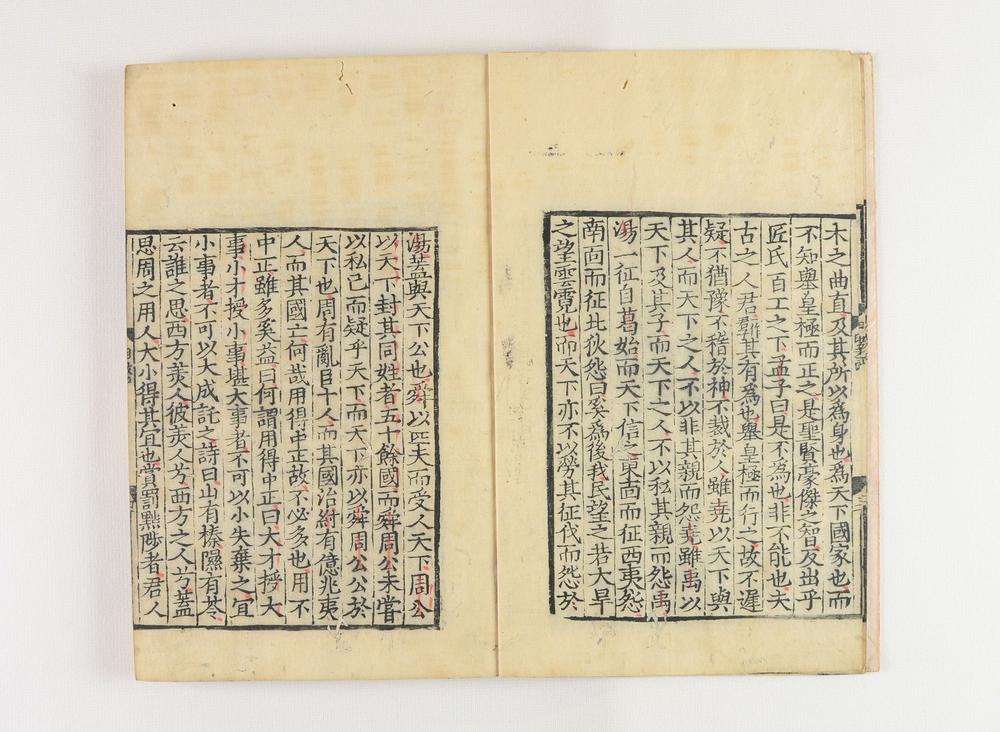 木之曲直及其所以為身也為天下國家也而
不知舉皇極而正之是聖賢豪傑之智反出乎
匠氏百工之下孟子曰是不為也非不能也夫
古之人君群誰其有為也舉皇極而行之故不遲
疑不猶豫不稽於神不裁於人雖堯以天下與
其人而天下之人不以非其親而怨堯雖禹以
天下及其子而天下之人不以私其親而怨禹
湯一征自葛始而天下信之東面而征西夷怨
南面而征北狄怨曰奚為後我民望之若大旱
之望雲霓也而天下亦不以勞其征伐而怨於
湯蓋與天下公也舜以匹夫而受人天下周公
以天下封其同姓者五十餘國而舜周公未嘗
以私己而疑乎天下而天下亦以舜周公公於
天下也周有亂臣十人而其國治紂有億兆夷
人而其國亡何哉用得中正故不必多也用不
中正雖多奚益曰何謂用得中正曰大才授大
事小才授小事堪大事者不可以小失棄之宜
小事者不可以大成託之詩曰山有榛隰有苓
云誰之思西方美人彼美人兮西方之人兮蓋
思周之用人大小得其宜也賞罰黜陟者君人